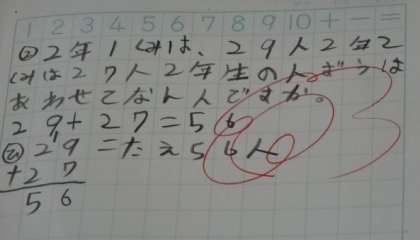 1 2 3 4 5 6 7 8 9 10 + − =
も 2年1くみは、29人2年2
くみは27人2年生の人ずうは
あわせてなん人ですか。
29+27=56
ひ 29 こたえ56人
+27
56